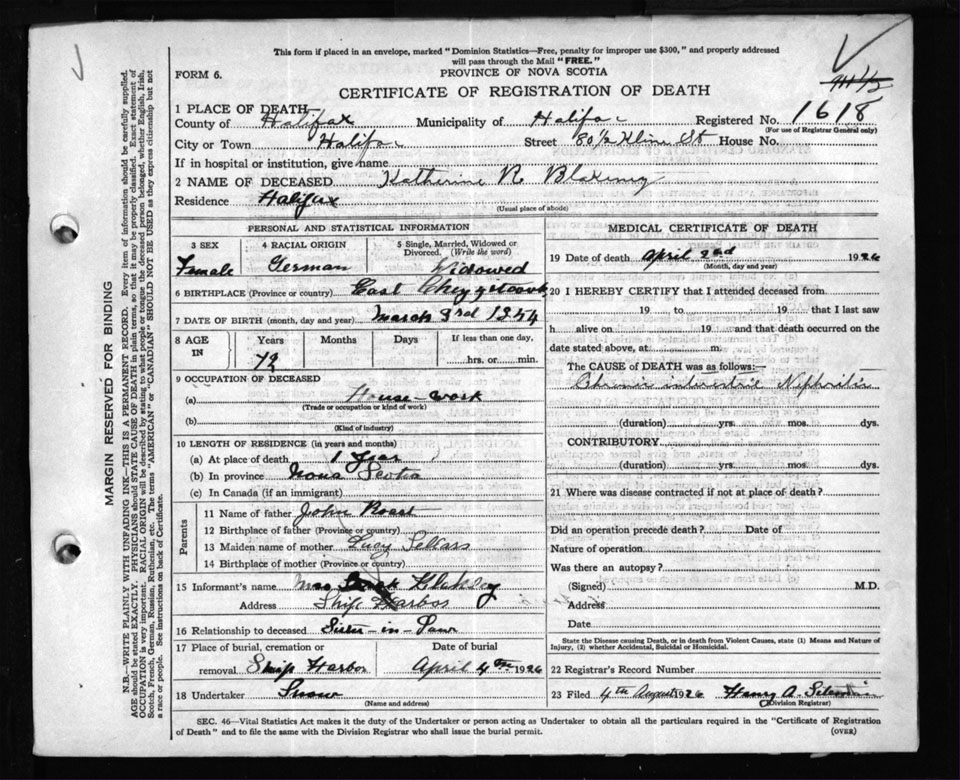 This form if placed in an envelope, marked "Dominion Statistics—Free, penalty for improper use $300," and properly addressed
will pass through the Mail "FREE."
FORM 6.
PROVINCE OF NOVA SCOTIA
CERTIFICATE OF REGISTRATION OF DEATH
1 PLACE OF DEATH—
County of Halifax Municipality of Halifax Registered No. 1618
(For use of Registrar General only)
City or Town Halifax Street 80½ Kline St House No.
If in hospital or institution, give name
2 NAME OF DECEASED Katherine R Blakeney
Residence Halifax
(Usual place of abode)
PERSONAL AND STATISTICAL INFORMATION
3 SEX 4 RACIAL ORIGIN 5 Single, Married, Widowed or
Divorced. (Write the word)
Female German Widowed
6 BIRTHPLACE (Province or country) East Chezzetcook
7 DATE OF BIRTH (month, day and year) March 3rd 1854
8 AGE IN Years Months Days If less than one day,
72 hrs. or min.
9 OCCUPATION OF DECEASED
(a) House-work
(Trade or occupation or kind of work)
(b)
(Kind of industry)
10 LENGTH OF RESIDENCE (in years and months)
(a) At place of death 1 Year
(b) In province Nova Scotia
(c) In Canada (if an immigrant)
Parents
11 Name of father John Roast
12 Birthplace of father (Province or country)
13 Maiden name of mother Lucy Sellars
14 Birthplace of mother (Province or country)
15 Informant's name Mrs
Address Ship Harbor
16 Relationship to deceased Sister-in-Law
17 Place of burial, cremation or Date of burial
removal Ship Harbor April 4th 1926
18 Undertaker Snow
(Name and address)
MEDICAL CERTIFICATE OF DEATH
19 Date of death April 2nd 1926
(Month, day and year)
20 I HEREBY CERTIFY that I attended deceased from
19 to 19 that I last saw
h alive on 19 and that death occurred on the
date stated above, at m.
The CAUSE of DEATH was as follows:—
Chronic interstitial Nephritis
(duration) yrs. mos. dys.
CONTRIBUTORY
(duration) yrs. mos. dys.
21 Where was disease contracted if not at place of death?
Did an operation precede death? Date of
Nature of operation
Was there an autopsy?
(Signed) M.D.
Address
Date
State the Disease causing Death, or in death from Violent Causes, state (1) Means and Nature of
Injury, (2) whether Accidental, Suicidal or Homicidal.
22 Registrar's Record Number
23 Filed 4th August 1926 Harry A.
(Division Registrar)
SEC. 46—Vital Statistics Act makes it the duty of the Undertaker or person acting as Undertaker to obtain all the particulars required in the "Certificate of Registration
of Death" and to file the same with the Division Registrar who shall issue the burial permit.
(OVER)
MARGIN RESERVED FOR BINDING
N.B.—WRITE PLAINLY WITH UNFADING INK—THIS IS A PERMANENT RECORD. Every item of information should be carefully supplied.
AGE should be stated EXACTLY. PHYSICIANS should STATE CAUSE OF DEATH in plain terms, so that it may be properly classified. Exact statement of
OCCUPATION is very important. RACIAL ORIGIN will be described by stating to what people or tongue the deceased person belonged, whether English, Irish,
Scotch, French, German, Russian, Ruthenian, etc. The terms "AMERICAN" or "CANADIAN" SHOULD NOT BE USED as they express citizenship but not
a race or people. See instructions on back of Certificate.